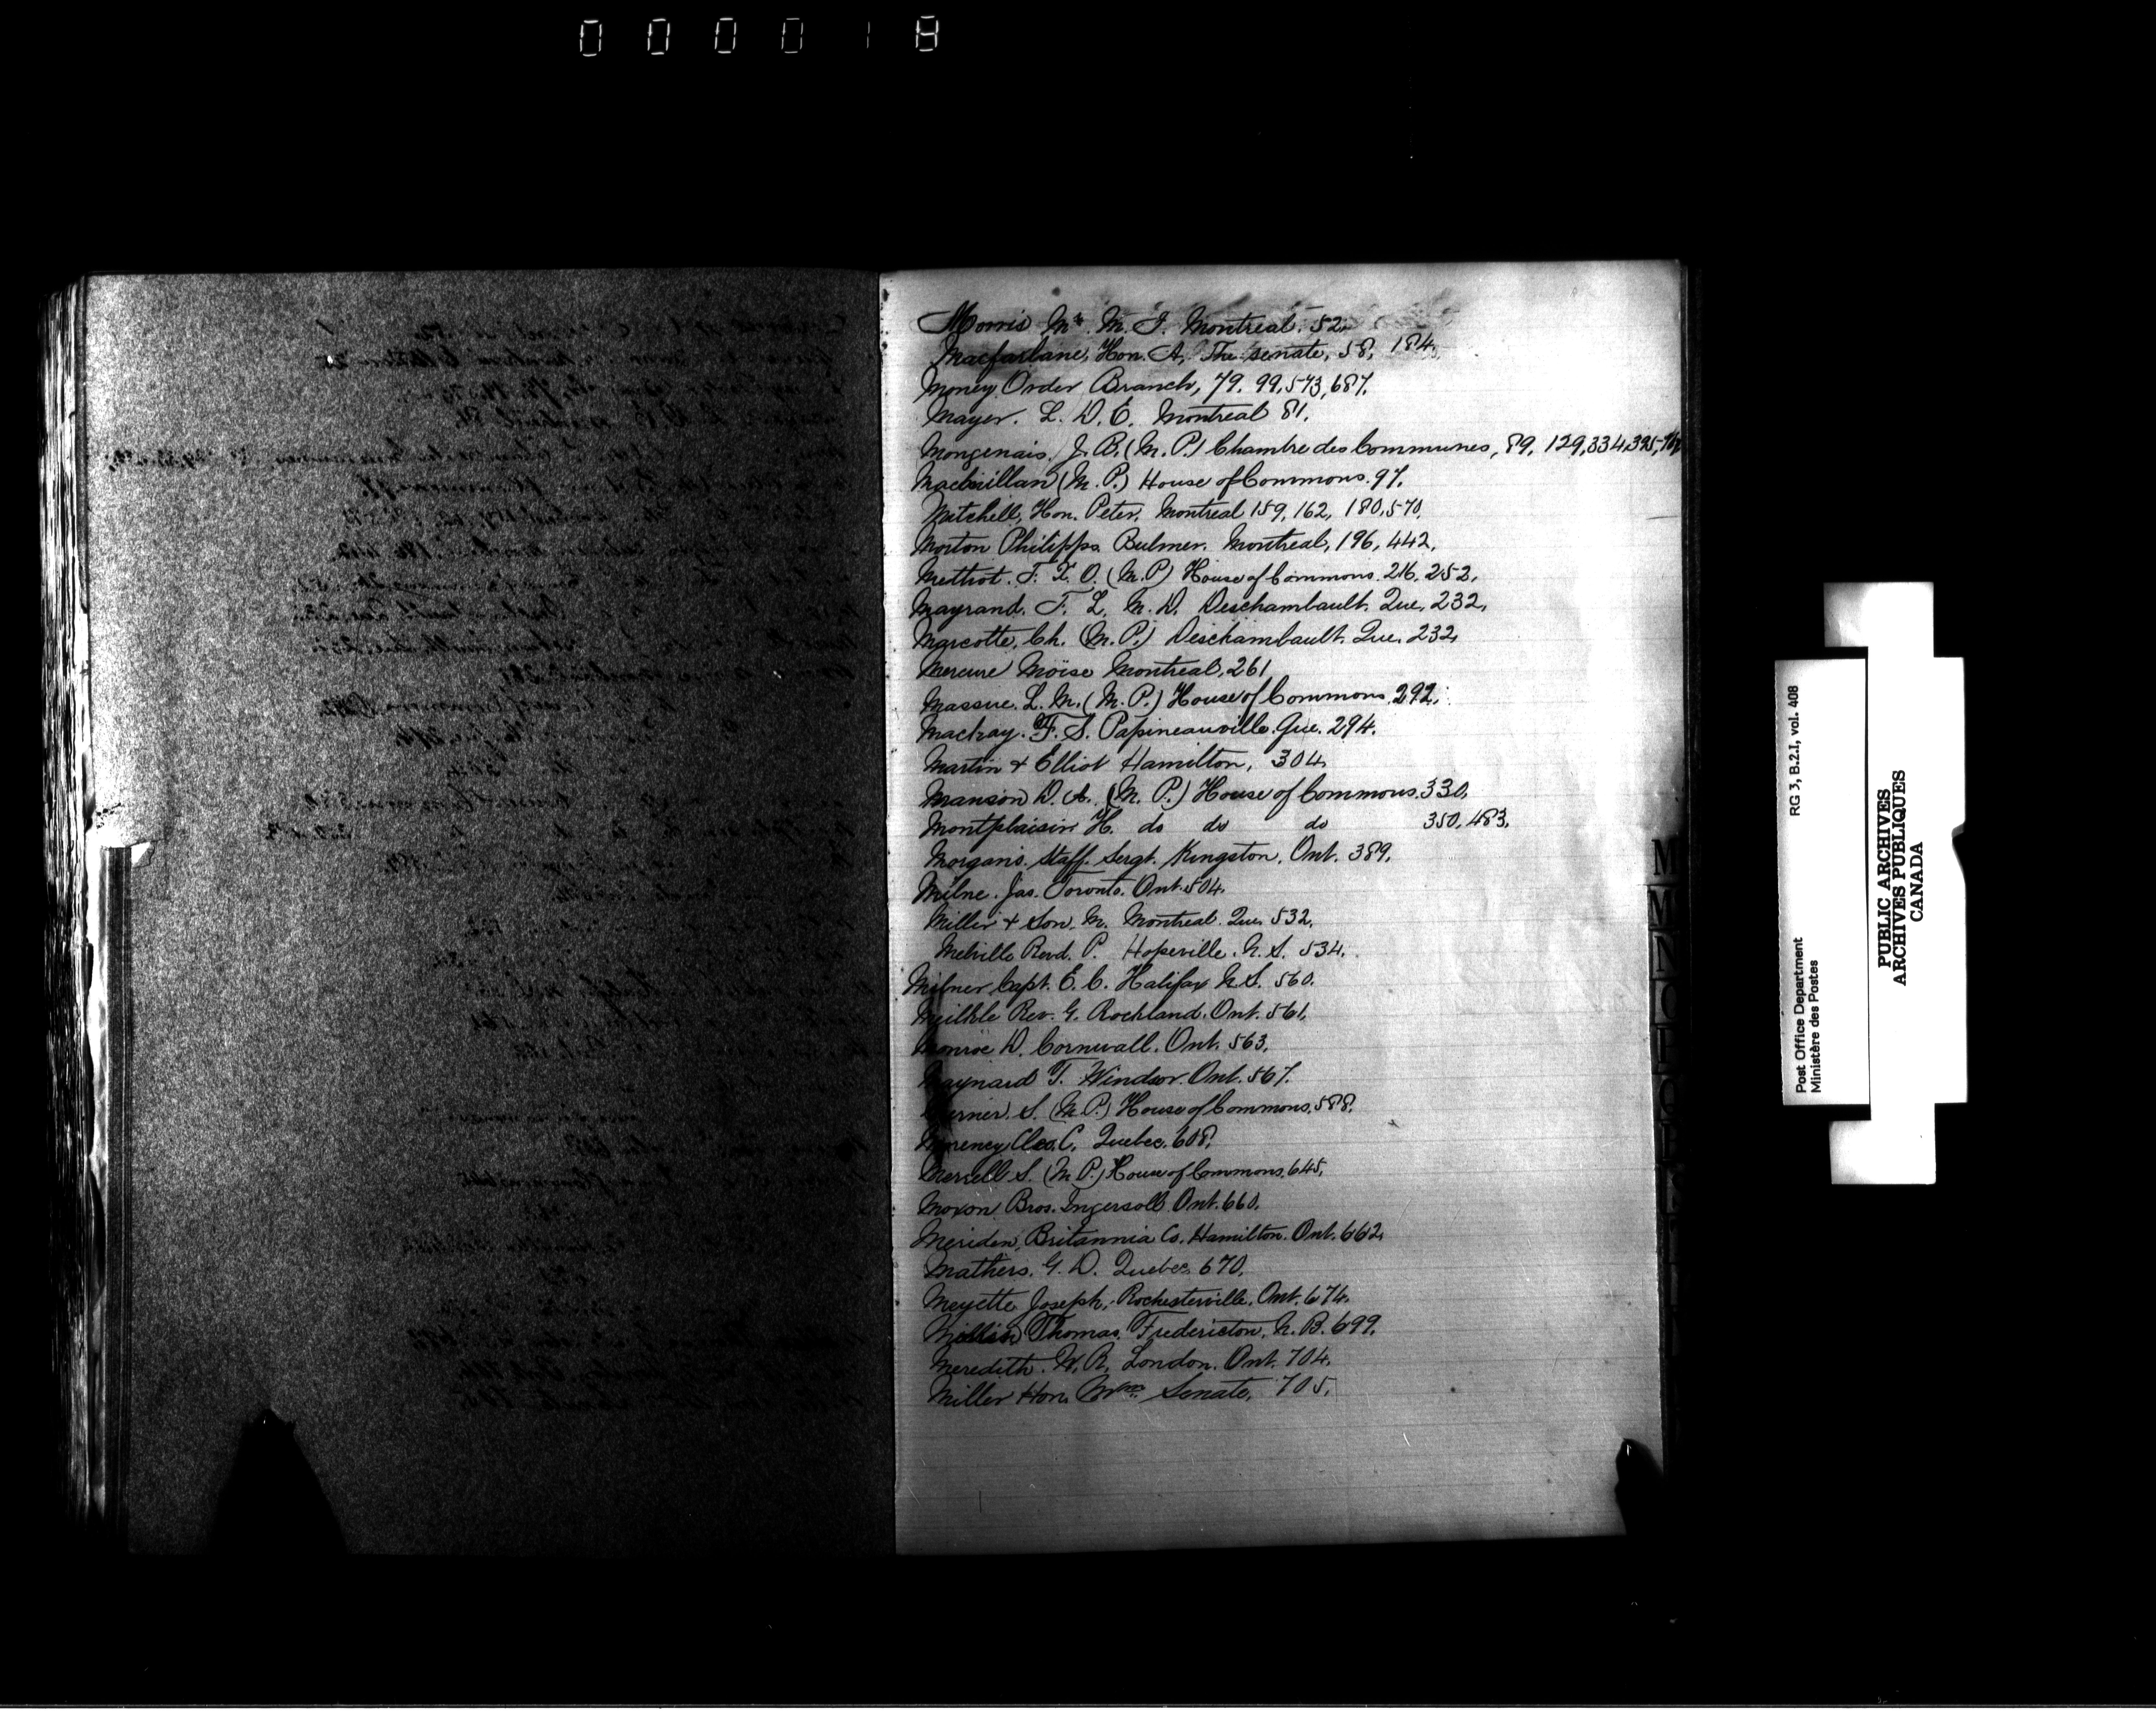 000018
Morris Mr. M. J. Montreal. 52.
Macfarlane, Hon. A. The senate, 58, 184.
Money Order Branch, 79. 99, 573, 687.
Mayer. L. D. E. Montreal 81.
Mongenais. J. B. (M. P.) Chambre des Communes, 89, 129, 334, 395,
Macmillan (M. P.) House of Commons. 97.
Mitchell, Hon. Peter. Montreal 159, 162, 180, 570.
Morton Philipps Bulmer. Montreal, 196, 442.
Methot. F. X. O. (M.P) House of Commons. 216, 252.
Mayrand. F. L. M. D. Deschambault. Que. 232.
Marcotte, Ch. (M. P.) Deschambault. Que. 232.
Mercure Moïse Montreal, 261
Massue. L. M. (M. P.) House of Commons. 292.
Mackay. F. S. Papineauville. Que. 294.
Martin & Elliot Hamilton, 304.
Manson D. A. (M. P.) House of Commons. 330.
Montplaisir H. do do do 350, 483.
Morgans. Staff. Sergt. Kingston. Ont. 389.
Milne. Jas. Toronto. Ont. 504.
Miller & Son. M. Montreal. Que. 532.
Melville Revd. P. Hopeville. N. S. 534.
Milner Capt. E. C. Halifax N. S. 560.
Rev. G. Rockland. Ont. 561.
Monroe D. Cornwall. Ont. 563.
Maynard T. Windsor. Ont. 567.
S. (M. P.) House of Commons. 588.
Morency Cleo. C. Quebec. 608.
Merrell S. (M P.) House of Commons. 645.
Moxon Bros. Ingersoll Ont. 660.
Meriden, Britannia Co. Hamilton. Ont. 662.
Mathers. G. D. Quebec. 670.
Meyette Joseph, Rochesterville, Ont. 674.
Thomas. Fredericton, N. B. 699.
Meredith. W. R. London. Ont. 704.
Miller Hon. Wm. Senate, 705.
M
M
N
O
Post Office Department
Ministère des Postes
RG 3, B.2.I, vol. 408
PUBLIC ARCHIVES
ARCHIVES PUBLIQUES
CANADA